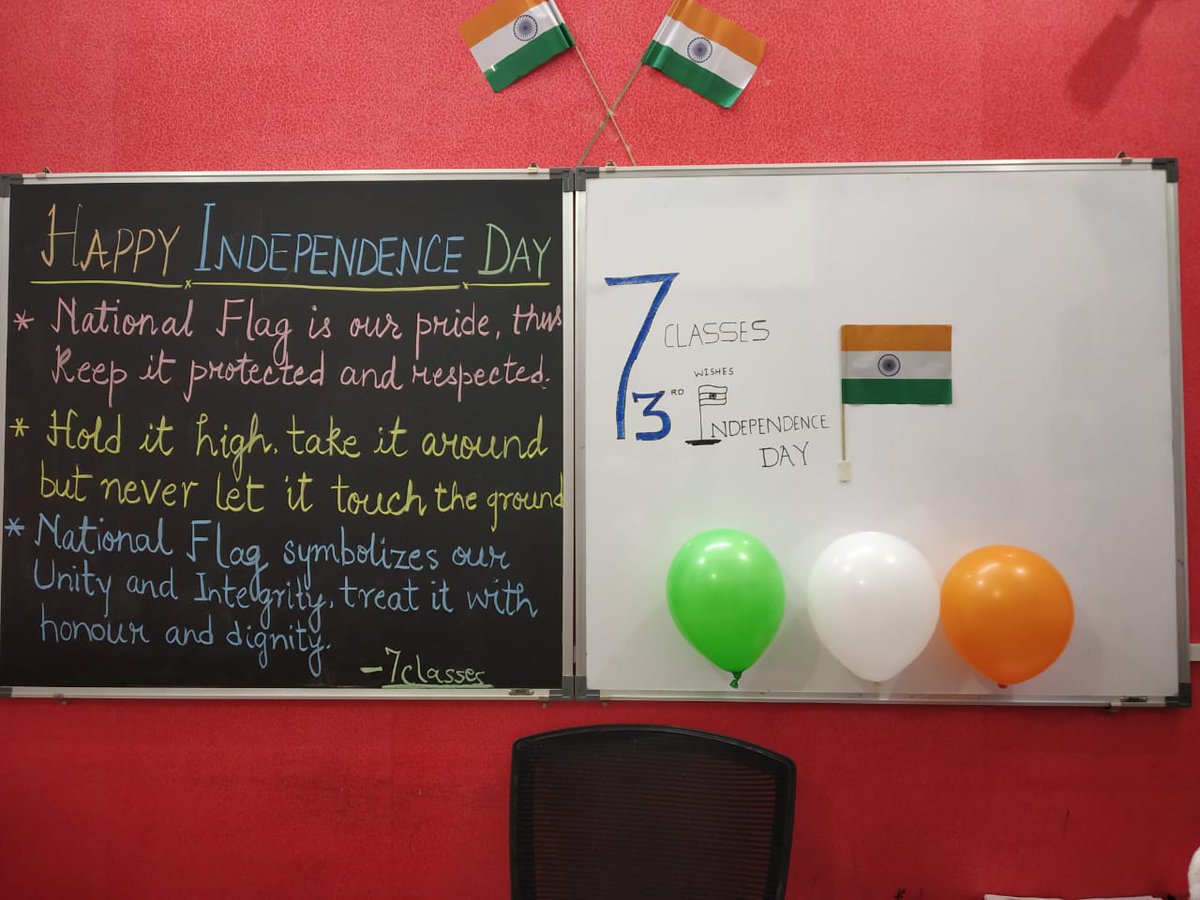 HAPPY INDEPENDENCE DAY
* National Flag is our pride, thus
Keep it protected and respected.
* Hold it high, take it around
but never let it touch the ground
* National Flag symbolizes our
Unity and Integrity, treat it with
honour and dignity.
- 7classes
7 CLASSES
WISHES
3RD INDEPENDENCE
DAY